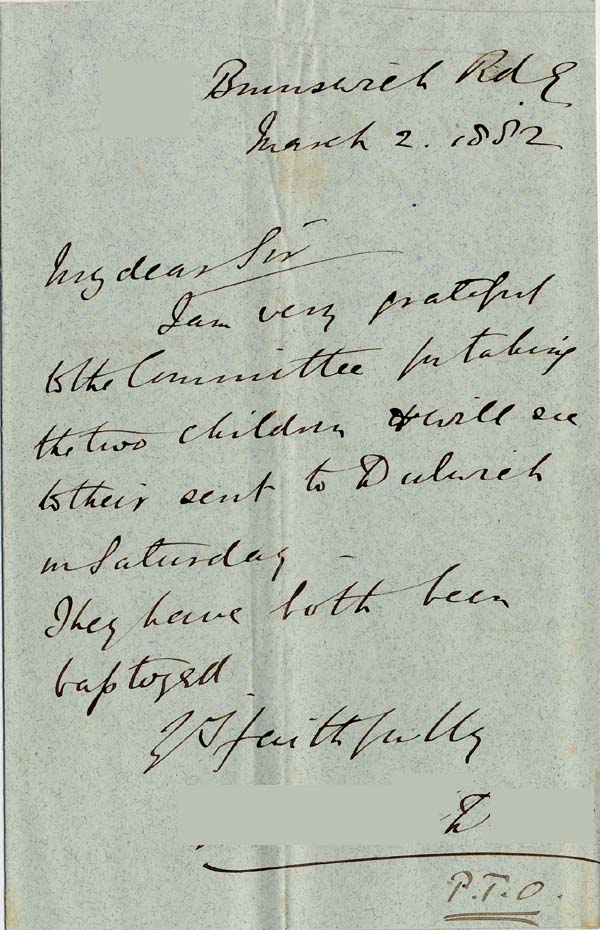 Brunswick Rd E
March 2. 1882
My dear Sir
I am very grateful
to the Committee for taking
the two children & will see
to their sent to Dulwich
on Saturday –
They have both been
baptized
Yrs faithfully
P.T.O.